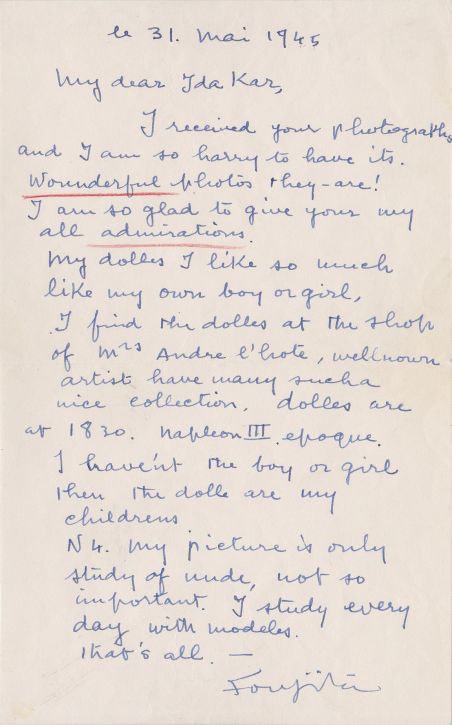 le 31. Mai 1945
My dear Ida Kar,
I received your photographs
and I am so harry to have its.
Wounderful photos they-are!
I am so glad to give your my
all admirations.
My dolles I like so much
like my own boy or girl,
I find the dolles at the shop
of Mrs Andre l'hote, wellnown
artist have many sucha
nice collection. dolles are
at 1830. Napleon III. epoque.
I have'nt the boy or girl
then the dolle are my
childrens
N4. My picture is only
study of nude, not so
important. I study every
day with modeles.
that's all. —
Foujita